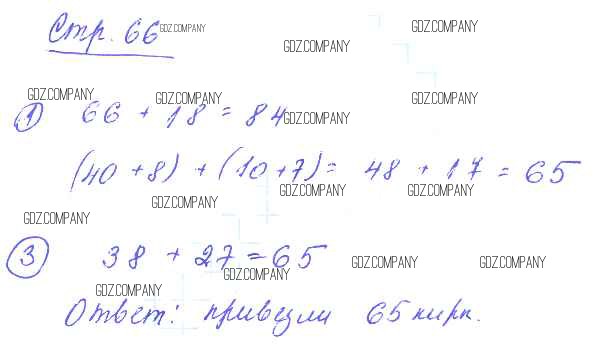 Стр. 66
GDZ.COMPANY
GDZ.COMPANY
GDZ.COMPANY
GDZ.COMPANY
GDZ.COMPANY
GDZ.COMPANY
① 66 + 18 = 84
GDZ.COMPANY
(40 + 8) + (10 + 7) = 48 + 17 = 65
GDZ.COMPANY
GDZ.COMPANY
GDZ.COMPANY
GDZ.COMPANY
③ 38 + 27 = 65
GDZ.COMPANY
GDZ.COMPANY
GDZ.COMPANY
GDZ.COMPANY
Ответ: привезли 65 кирп.